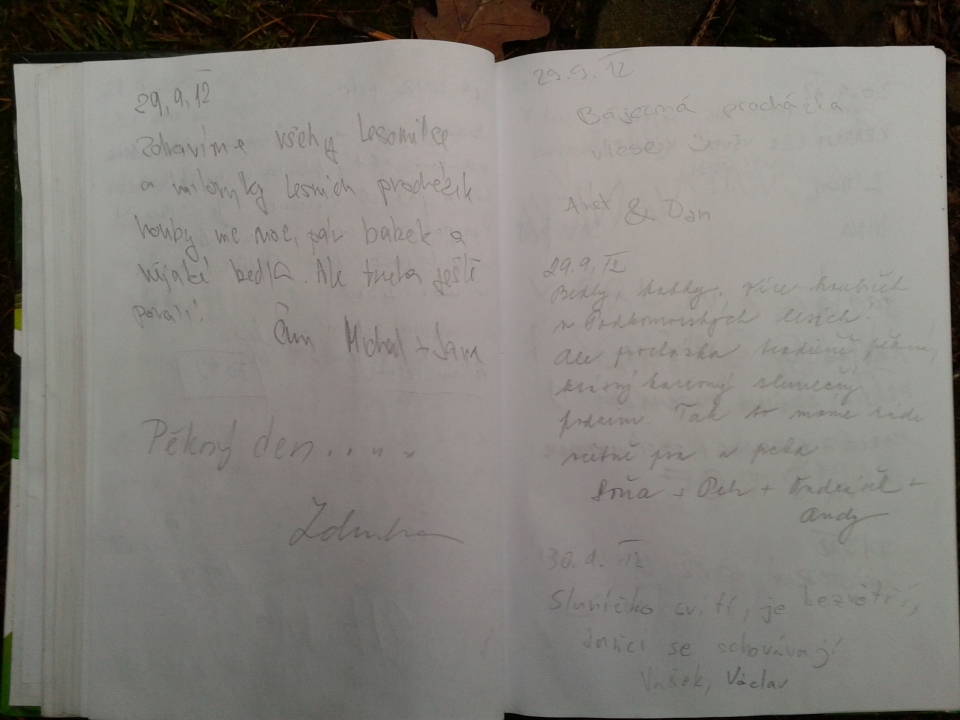 29.9.12
Zdravíme všehy Lesomilce
a milovníky lesních procházek
houby me moc, pár babek a
nějaké bedly. Ale třeba ještě
povalí!
Michal + Jana
Pěkný den.....
Zdenka
29.9.12
Báječná procházka
v lese
& Dan
29.9.12
Bedly, babky,
v Podkomorských lesích.
Ale procházka tradičně pěkná,
krásný barevný slunečný
podzim. Tak to máme rádi
včetně psa a
Soňa + Petr + Ondrášek +
Andy
30.9.12
Sluníčko svítí, je bezvětří,
se schovávají
Vašek, Václav